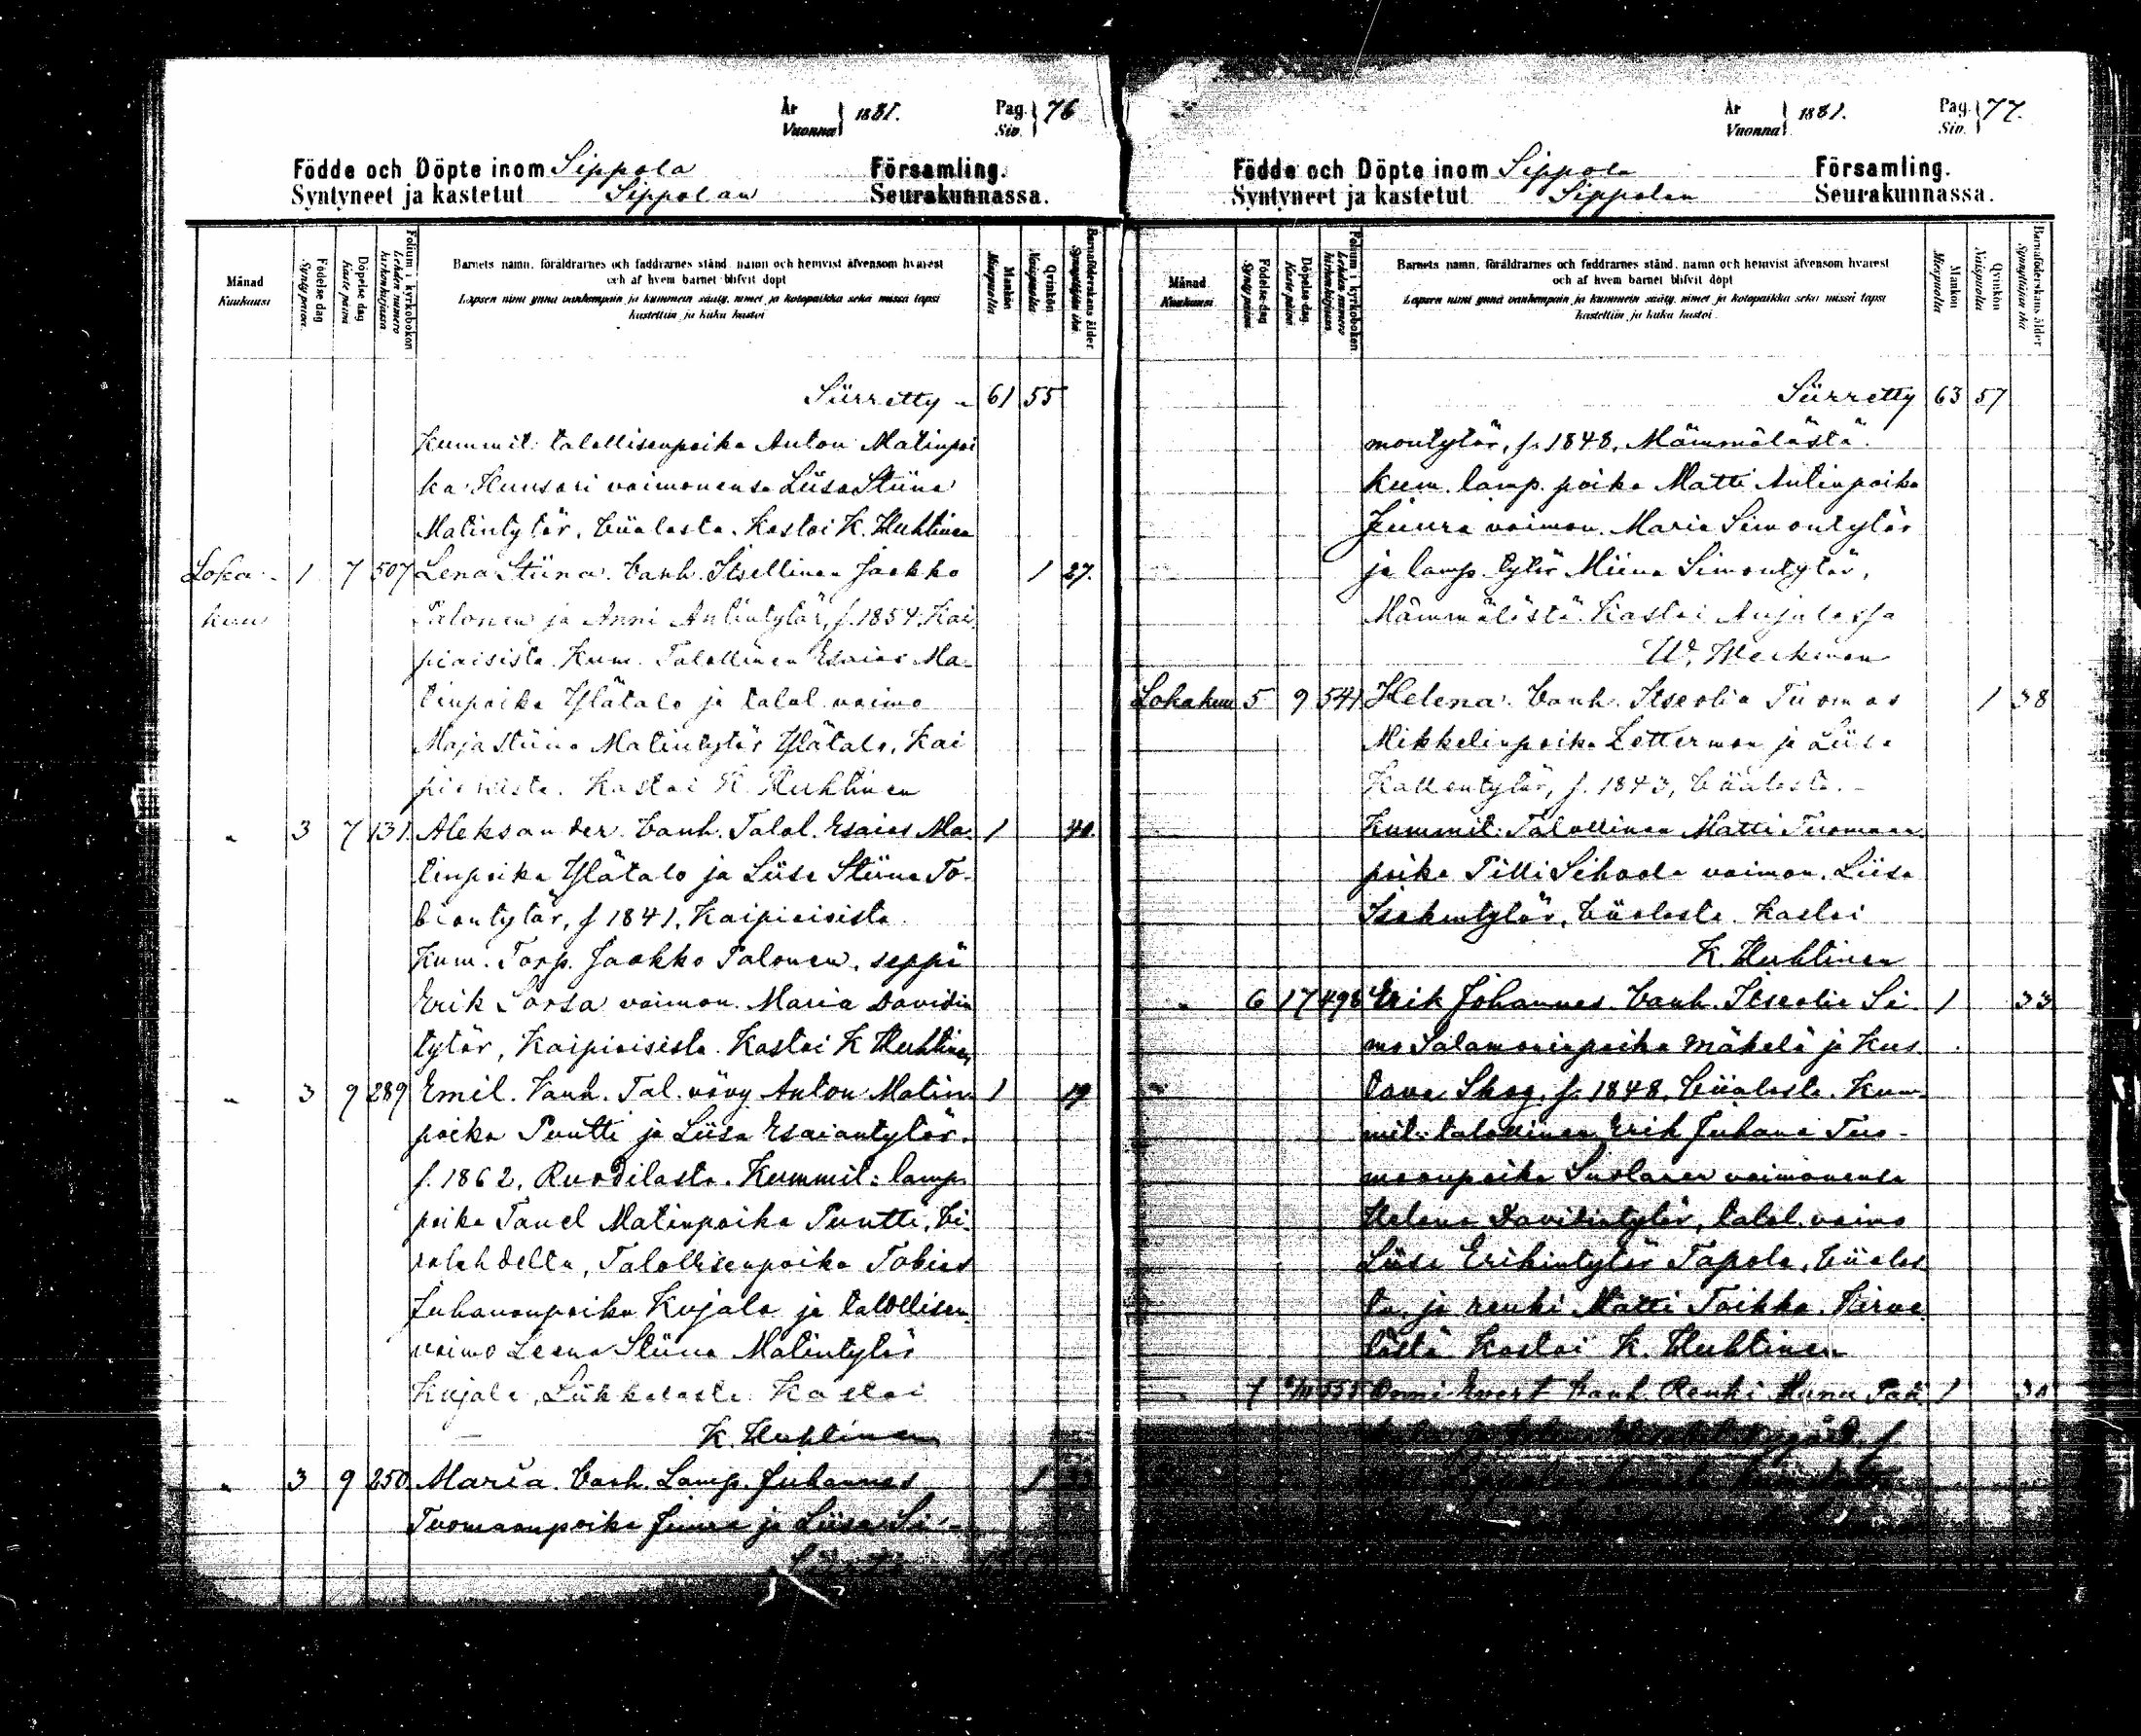 År Vuonna } 1881. Pag. Siv. } 76
Födde och Döpte inom Sippola Församling.
Syntyneet ja kastetut Sippolan Seurakunnassa.
Månad Kuukausi
Födelse dag Synty päivä.
Döpelse dag Kaste päivä
Folium i kyrkoboken Lehden numero kirkonkirjassa
Barnets namn, föräldrarnes och faddrarnes stånd, namn och hemvist äfvensom hvarest
och af hvem barnet blifvit döpt
Lapsen nimi ynnä vanhempain ja kummein sääty, nimet ja kotopaikka sekä missä lapsi
kastettiin ja kuka kastoi
Mankön Miespuolta
Qvinkön Naispuolta
Barnaföderskans ålder Synnyttäjän ikä
Siirretty 61 55
Kummit: talollisenpoika Anton Matinpoi
ka Hunsari vaimonensa Liisa Stiina
Matintytär, Liialasta. Kastoi K. Huhtinen
Loka- 1 7 507 Lena Stiina. Vanh. Itsellinen Jaakko 1 27.
kuu Talonen ja Anni Antintytär, s. 1854, Kai
piaisista. Kum. Talollinen Esaias Ma-
tinpoika Ylätalo ja talol. vaimo
Maja Stiina Matintytär Ylätalo, Kai
piaisista. Kastoi K. Huhtinen
" 3 7 131. Aleksander. Vanh. Talol. Esaias Ma- 1 40.
tinpoika Ylätalo ja Liisa Stiina To-
biantytär, s 1841, Kaipiaisista.
Kum. Torp. Jaakko Talonen, seppä
Erik Sorsa vaimon. Maria Davidin
tytär, Kaipiaisista. Kastoi K Huhtinen
" 3 9 289 Emil. Vanh. Tal. vävy Anton Matin 1 19
poika Puntti ja Liisa Esaiantytär.
s. 1862, Ruotilasta. Kummit: lamp.
poika Tanel Matinpoika Puntti, Vi-
rolahdelta, Talollisenpoika Tobias
Juhananpoika Kujala ja talollisen
vaimo Leena Stiina Matintytär
Kujala, Liikkalasta. Kastoi
K. Huhtinen
" 3 9 250 Maria. Vanh. Lamp. Juhannes 1
Tuomaanpoika Juura ja Liisa Si-
År Vuonna } 1881. Pag. Siv. } 77.
Födde och Döpte inom Sippola Församling.
Syntyneet ja kastetut Sippolan Seurakunnassa.
Månad Kuukausi
Födelse-dag Synty päivä
Döpelse dag Kaste päivä
Folium i kyrkoboken Lehden numero kirkonkirjassa
Barnets namn, föräldrarnes och faddrarnes stånd, namn och hemvist äfvensom hvarest
och af hvem barnet blifvit döpt
Lapsen nimi ynnä vanhempain ja kummein sääty, nimet ja kotopaikka sekä missä lapsi
kastettiin ja kuka kastoi
Mankön Miespuolta
Qvinkön Naispuolta
Barnaföderskans ålder Synnyttäjän ikä
Siirretty 63 57
montytär, s. 1848, Mämmälästä.
Kum. lamp. poika Matti Antinpoika
Juura vaimon. Maria Simontytär
ja lamp. tytär Miina Simontytär,
Mämmälästä. Kastoi Anjalassa
W. Weckman
Lokakuu 5 9 541 Helena. Vanh. Itseolia Tuomas 1 38
Mikkelinpoika Letterman ja Liisa
Kallentytär, s. 1843, Liialasta.
Kummit: Talollinen Matti Tuomaan
poika Pilli Sihvola vaimon. Liisa
Isakintytär, Liialasta. Kastoi
K. Huhtinen
" 6 17 498 Erik Johannes. Vanh. Itseolia Si- 1 33
mo Salamoninpoika Mäkelä ja Kus
tava Skog, s. 1848, Liialasta. Kum-
mit: talollinen Erik Juhana Tuo-
maanpoika Suolanen vaimonensa
Helena Davidintytär, talol. vaimo
Liisa Erikintytär Tapola, Liialas
ta, ja renki Matti Toikka, Sirve
lästä Kastoi K. Huhtinen
" 7 555 Onni Evert Vanh. Renki Hanu 1 30